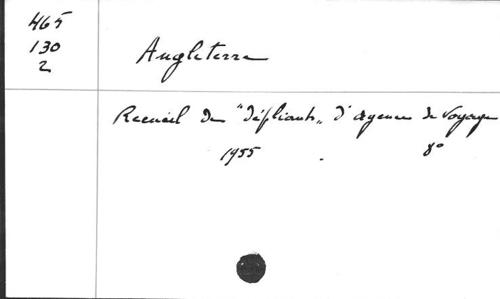 465
130
2
Angleterre
Recueil de "dépliants" d'agence de voyage
1955 . 8°